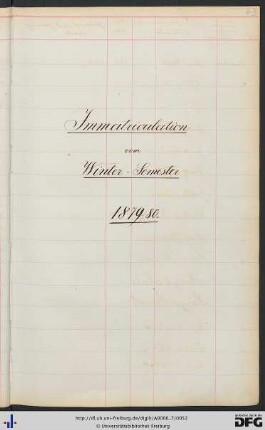 Immatriculation
vom
Winter-Semester
1879/80.
http://dl.ub.uni-freiburg.de/diglit/
© Universitätsbibliothek Freiburg
DFG